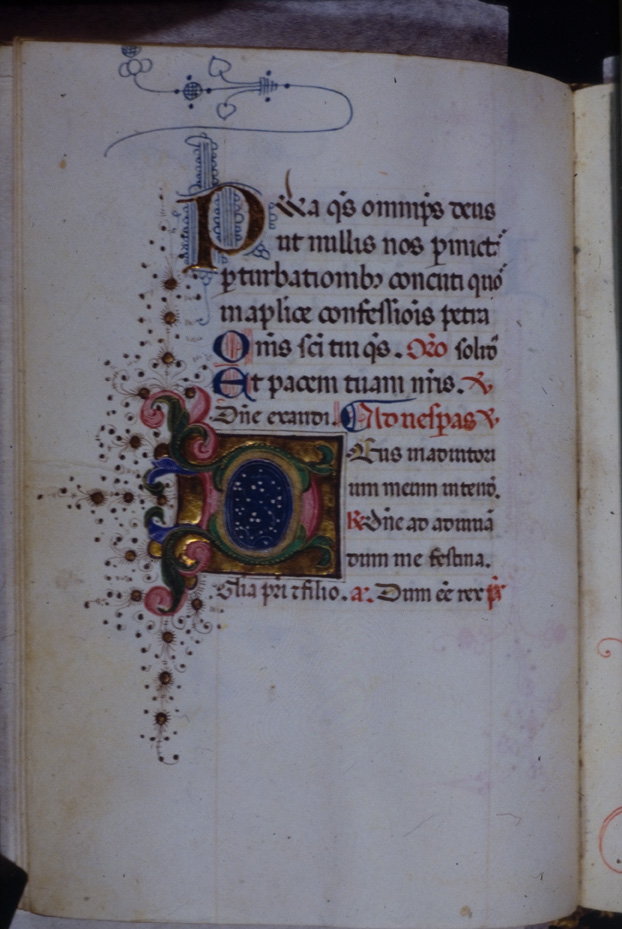 P̄sta q̄s omnip̄s deus
ut nullis nos p̄mict̄
p̄turbationib; concuti quo᷑
in ap̄lice confessiois petra
Om̄s sc̄i tui q̄s. Or̄o solid̄
Et pacem tuam nr̄is. ℣
Dn̄e exaudi. Ad uesp̄as ℣
Deus in adiutori
um meum intend̄.
℟ Dn̄e ad adiuuā
dum me festina.
Gl̄ia pr̄i ⁊ filio. a. Dum eē rex p̄s